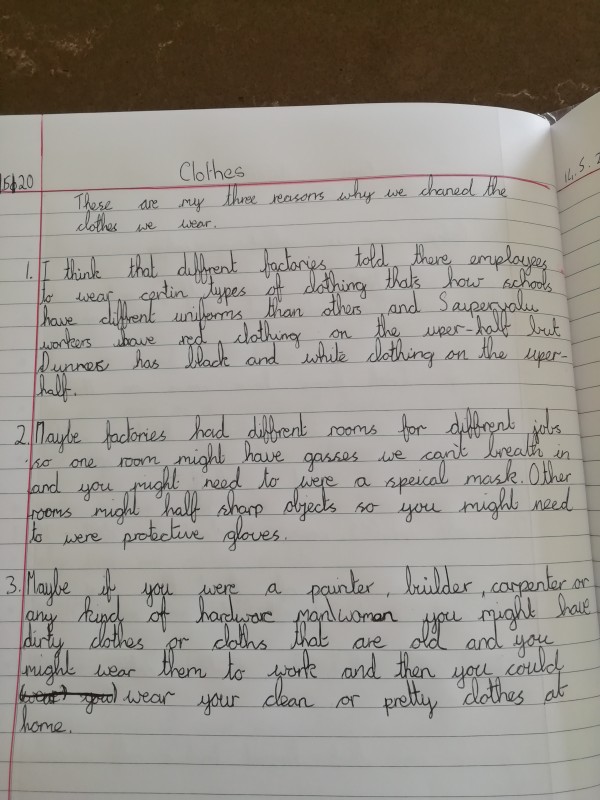 Clothes
15/5/20
14.5.2
These are my three reasons why we chaned the
clothes we wear.
1. I think that diffrent factories told there employees
to wear certin types of clothing that's how schools
have diffrent uniforms than others and Saupervalu
workers have red clothing on the uper-half but
Dunnes has black and white clothing on the uper-
half.
2. Maybe factories had diffrent rooms for diffrent jobs
so one room might have gasses we can't breath in
and you might need to were a speical mask. Other
rooms might half sharp objects so you might need
to were protective gloves.
3. Maybe if you were a painter, builder, carpenter or
any kind of hardware man/woman you might have
dirty clothes or cloths that are old and you
might wear them to work and then you could
wear your clean or pretty clothes at
home.